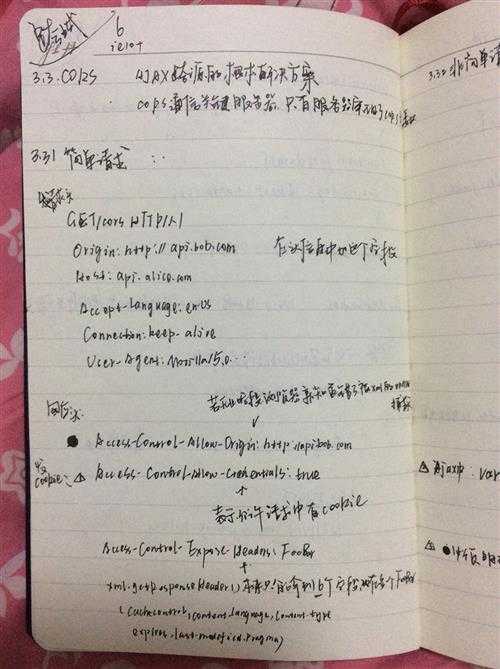 6
ie10+
3.3.CORS AJAX跨源的根本解决方案
cors通信关键服务器 只有服务器实现了cors
3.31 简单请求
请求头
GET/cors HTTP/1.1
Origin: http://api.bob.com
在头信息中加这个字段
Host: api.alice.com
Accept-Language: en-US
Connection: keep-alive
User-Agent: Mozilla/5.0...
回应头
Access-Control-Allow-Origin: http://api.bob.com
发cookie: △ Access-Control-Allow-Credentials: true
表示允许请求中有cookie
Access-Control-Expose-Headers: FooBar
xml.getResponseHeader() 只能拿到6个字段 FooBar
(cache-control, content-language, content-type
expires, last-modified, pragma)
3.32 非简单请
△ ajax中 var
△